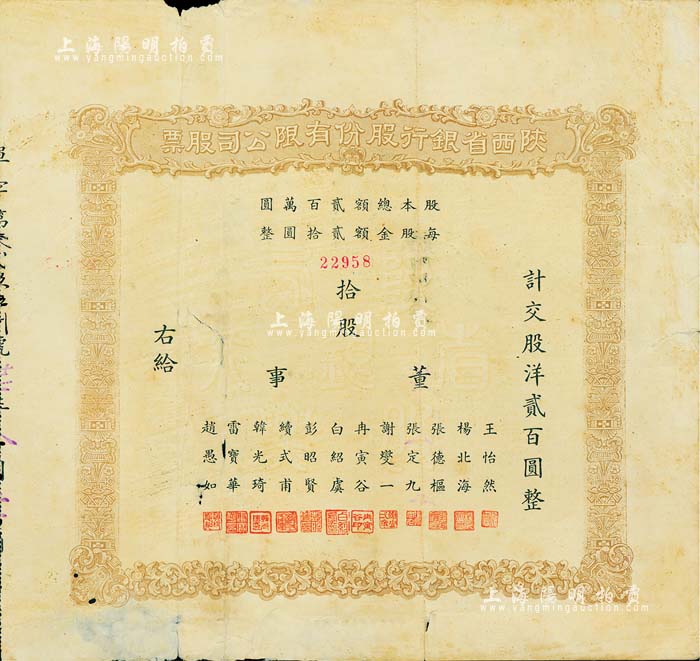 上海陽明拍賣
www.yangmingauction.com
陝西省銀行股份有限公司股票
股本總額貳百萬圓
每股金額貳拾圓整
22958
計交股洋貳百圓整
拾股
董事
王怡然
楊北海
張德樞
張定九
謝燮一
冉寅谷
白紹虞
彭昭賢
續式甫
韓光琦
雷寶華
趙愚如
右給
上海陽明拍賣
www.yangmingauction.com
上海陽明拍賣
www.yangmingauction.com